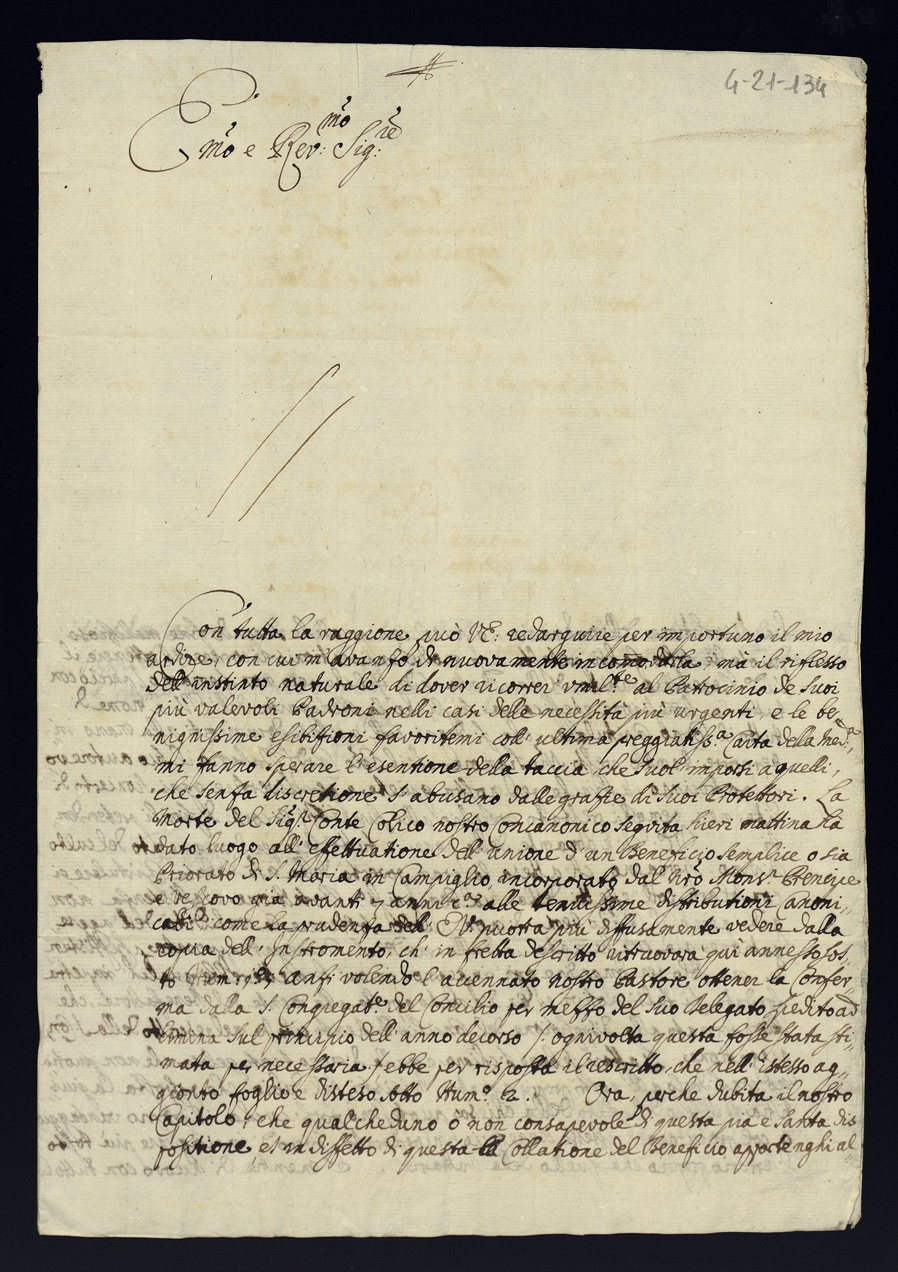 4-21-134
Em̃o e Rev:mo Sig:re
Con tutta la raggione può VE: redarguire per importuno il mio
ardire, con cui m'avanso di nuovamente incomodarla, mà il riflesso
dell'instinto naturale di dover ricorrer umil:te al Patrocinio de Suoi
più valevoli Padroni nelli casi delle necessità più urgenti, e le be-
nignissime esibitioni favoritemi coll'ultima preggiatiss:a Carta della
mi fanno sperare l'esentione della taccia, che suol'imporsi a quelli,
che senza discretione s'abusano dalle grassie di Suoi Protettori. La
Morte del Sig:r Conte Colico nostro Concanonico seguita hieri mattina hà
dato luogo all'effettuatione dell'unione d'un Beneficio Semplice o sia
Priorato di S. Maria in Campiglio incorporato dal Mons:r Prencipe
e Vescovo già avanti 7 anni alle tenuissime distributioni canoni-
cali, come la prudenza dell' EV: puotrà più diffusamente vedere dalla
copia dell' Instromento, ch'in fretta descritto ritrovarà qui annesso sot-
to Num: anzi volendo l'accennato nostro Pastore ottener la Confer-
ma dalla S. Congregat:e del Concilio per messo del Suo Delegato spedito ad
limina sul principio dell'anno decorso /: ogni volta questa fosse stata sti-
mata per necessaria :/ ebbe per risposta il rescritto, che nell'istesso ag-
gionto foglio è disteso sotto Num:o 2. Ora, perche dubita il nostro
Capitolo, che qualcheduno ò non consapevole di questa pia e Santa dis-
positione, et in diffetto di questa la Collatione del Beneficio appartenghi al-